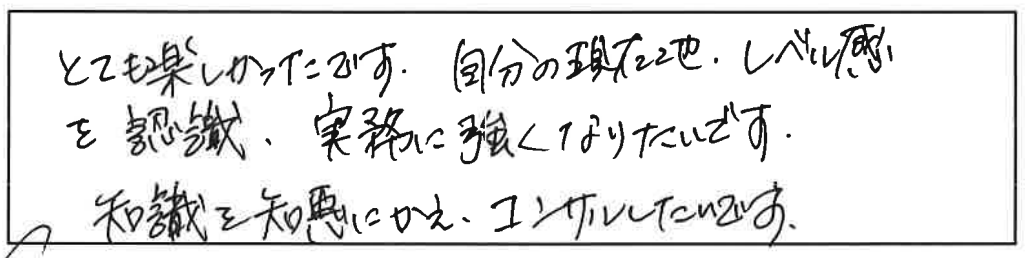 とても楽しかったです. 自分の現在地. レベル感
を認識、実務に強くなりたいです.
知識を知恵にかえ、コンサルしたいです.